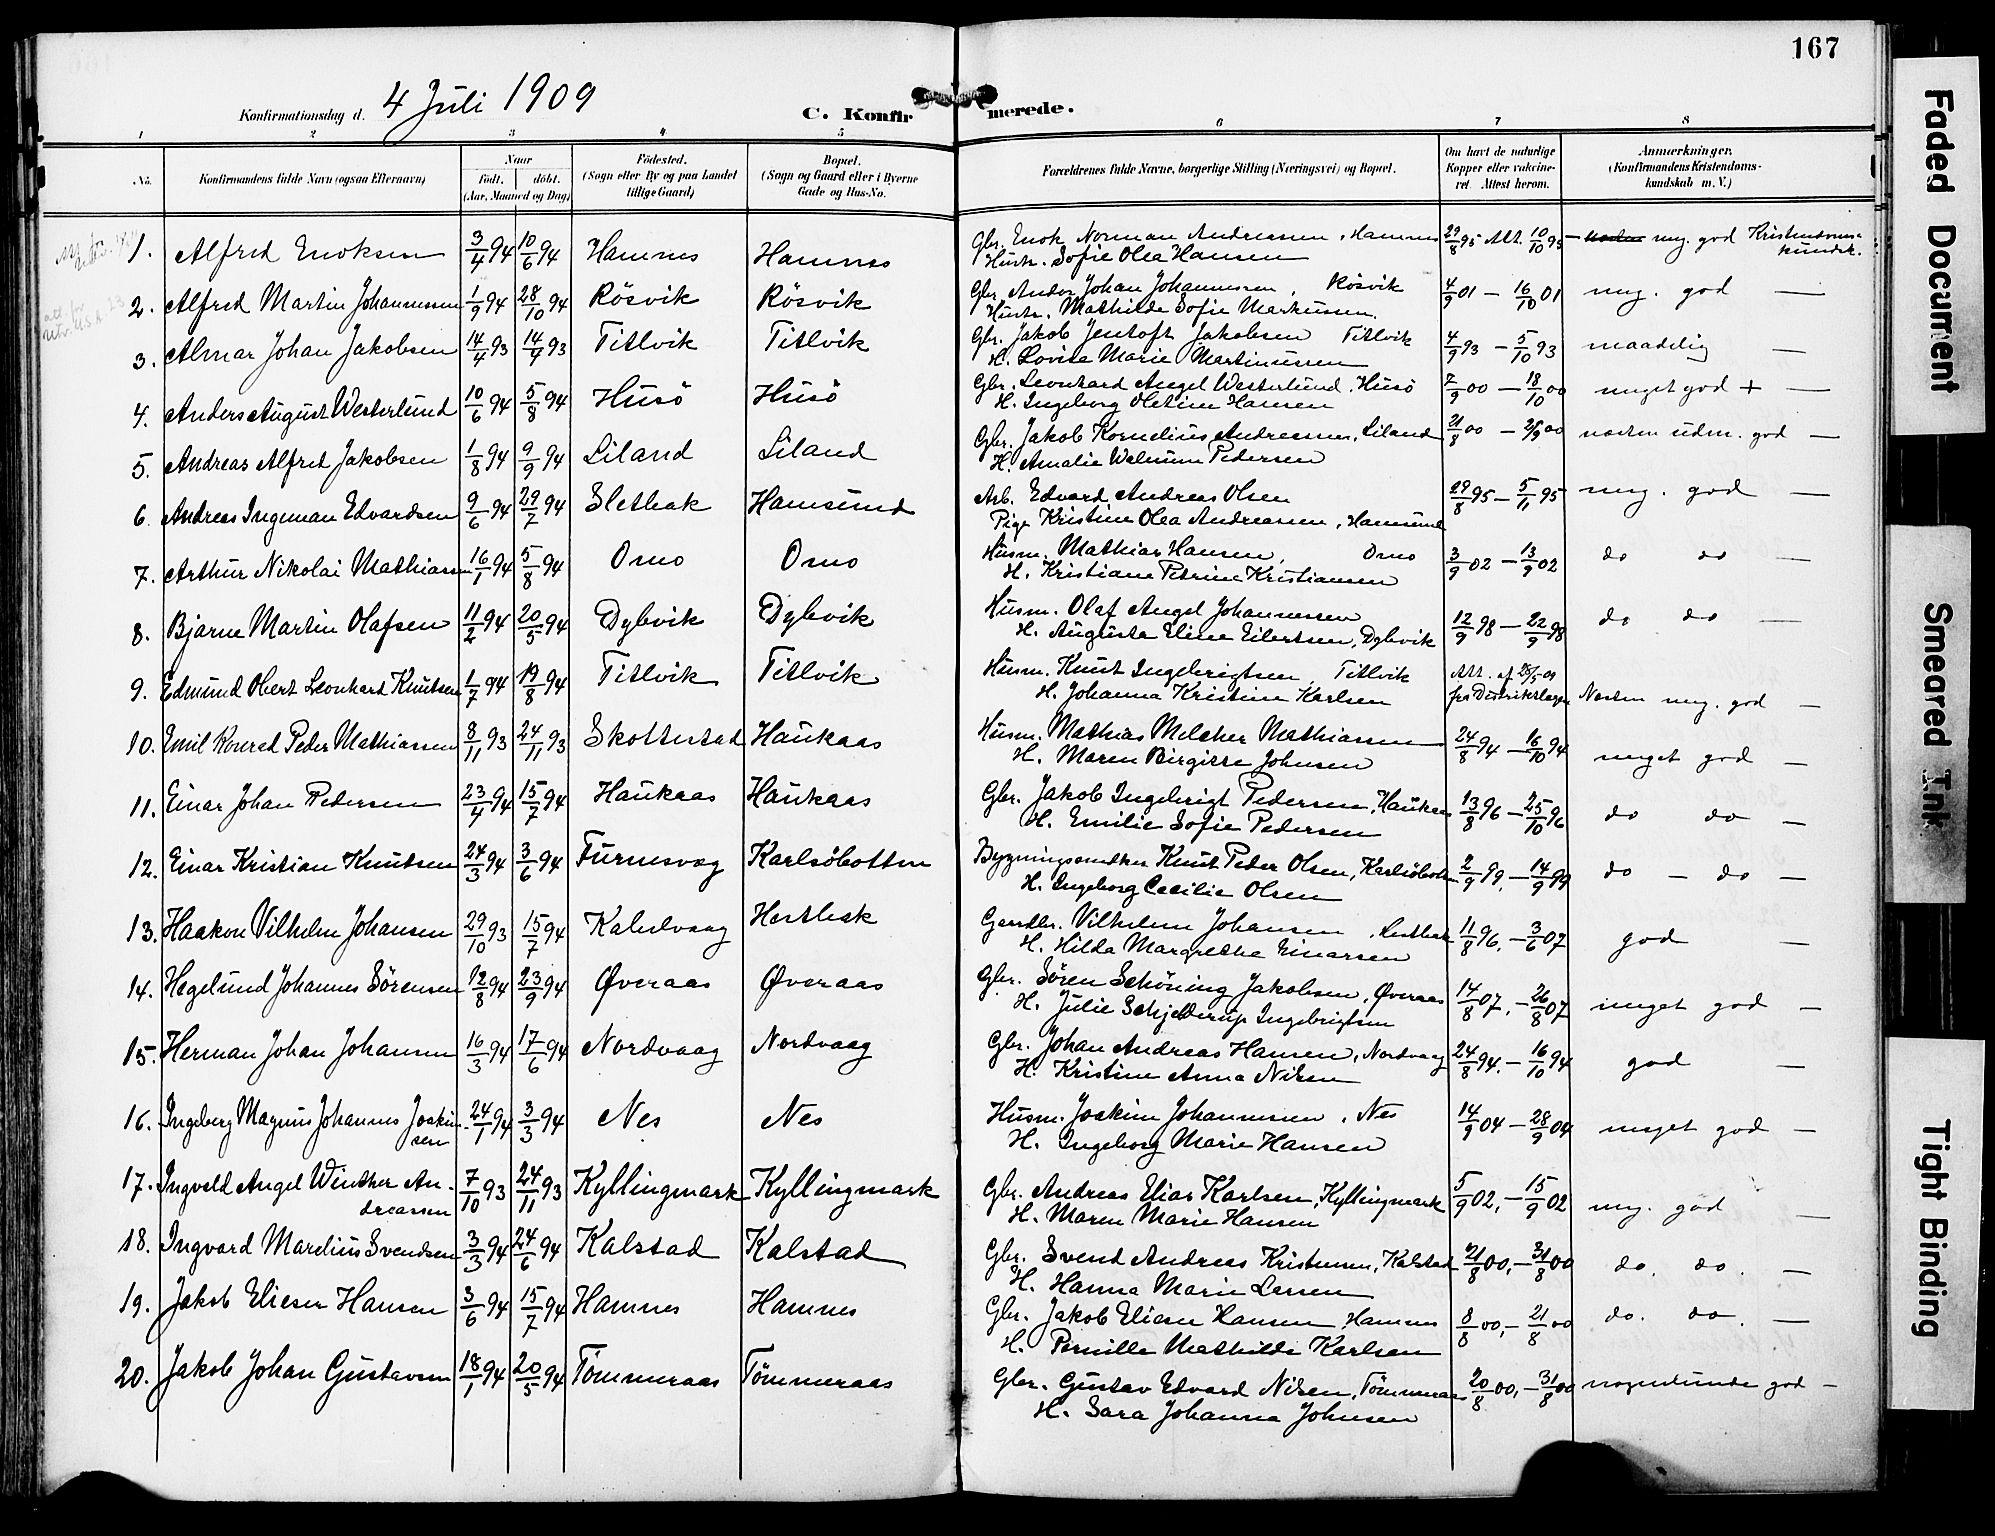 167
Konfirmationsdag d. 4 Juli 1909
C. Konfirmerede.
1 2 3 4 5 6 7 8
No. Konfirmandens fulde Navn (ogsaa Efternavn) Naar Født. døbt. (Aar, Maaned og Dag) Fødested. (Sogn eller By og paa Landet tillige Gaard) Bopæl. (Sogn og Gaard eller i Byerne Gade og Hus-No. Forældrenes fulde Navne, borgerlige Stilling (Næringsvei) og Bopæl. Om havt de naturlige Kopper eller vakcineret. Attest herom. Anmærkninger. (Konfirmandens Kristendomskundskab m. V.)
1. Alfred Enoksen 3/4 94 10/6 94 Hamnes Hamnes Gbr. Enok Norman Andreassen, Hamnes 29/8 95 Att. 10/10 95 – mg. god Kristendoms-
Hustr. Sofie Olea Hansen kundsk.
2. Alfred Martin Johannessen 1/9 94 28/10 94 Røsvik Røsvik Gbr. Andor Johan Johannessen, Røsvik 4/9 01 – 16/10 01 mg. god —
Hustr. Mathilde Sofie Markussen.
3. Almar Johan Jakobsen 14/4 93 14/9 93 Titlvik Titlvik Gbr. Jakob Jentoft Jakobsen Titlvik 4/9 93 – 5/10 93 maadelig —
H. Lovise Marie Martinussen
4. Anders August Westerlund 10/6 94 5/8 94 Husö Husö Gbr. Leonhard Angel Westerlund. Husö 7/9 00 – 18/10 00 meget god + —
H. Ingeborg Oletine Hansen
5. Andreas Alfred Jakobsen 1/8 94 9/9 94 Liland Liland Gbr. Jakob Kornelius Andreassen, Liland 21/8 00 – 21/9 00 næsten udm. god —
H. Amalie Pedersen
6. Andreas Ingeman Edvardsen 9/6 94 29/7 94 Sletbak Hamsund Arb. Edvard Andreas Olsen 29/8 95 – 5/11 95 mg. god —
Pige Kristine Olea Andreassen, Hamsund
7. Arthur Nikolai Mathiassen 16/1 94 5/8 94 Omo Omo Husm. Mathias Hansen, Omo 3/9 02 – 13/9 02 do do —
H. Kristiane Petrine Kristiansen
8. Bjarne Martin Olafsen 11/2 94 20/5 94 Dybvik Dybvik Husm. Olaf Angel Johannessen 12/9 98 – 22/9 98 do do —
H. Auguste Eline Eilertsen, Dybvik
9. Edmund Obert Leonhard Knutsen 1/7 94 19/8 94 Titlvik Titlvik Husm. Knut Ingebrigtsen, Titlvik Att. af 28/5 09
H. Johanna Kristine Karlsen fra Distriktslægen Næsten mg. god —
10. Emil Konrad Peder Mathiassen 8/11 93 24/11 93 Skottestad Haukaas Husm. Mathias Melcher Mathiassen 24/8 94 – 16/10 94 meget god —
H. Maren Birgitte Johnsen
11. Einar Johan Pedersen 23/4 94 15/7 94 Haukaas Haukaas Gbr. Jakob Ingebrigt Pedersen, Haukaas 13/8 96 – 25/10 96 do do —
H. Emilie Sofie Pedersen
12. Einar Kristian Knutsen 24/3 94 3/6 94 Furnesvæg Karlsöbotten Knut Peder Olsen, Karlsöbotn 2/9 99, – 14/9 99 do – do —
H. Ingeborg Cecilie Olsen
13. Haakon Vilhelm Johansen 29/10 93 15/7 94 Kalvaag Hestbak Vilhelm Johansen 11/8 96, – 3/6 07 god —
H. Hilda Margrethe Einarsen
14. Hegelund Johannes Sörensen 12/8 94 23/9 94 Øveraas Øveraas Gbr. Søren Schöning Jakobsen, Øveraas 14/8 07, – 26/8 07 meget god —
H. Julie Schjelderup Ingebrigtsen
15. Herman Johan Johansen 16/3 94 17/6 94 Nordvaag Nordvaag Gbr. Johan Andreas Hansen, Nordvaag 24/8 94. – 16/10 94 god —
H. Kristine Anna Nilsen
16. Ingeberg Magnus Johannes Joakim- 24/1 94 3/3 94 Nes Nes Husm. Joakim Johannessen, Nes 14/9 04 – 28/9 04 meget god —
sen H. Ingeborg Marie Hansen
17. Ingvald Angel Winther An- 7/10 93 24/11 93 Kyllingmark Kyllingmark Gbr. Andreas Elias Karlsen, Kyllingmark 5/9 02, – 15/9 02 mg. god —
dreassen H. Maren Marie Hansen
18. Ingvard Marelius Svendsen 3/3 94 24/6 94 Kalstad Kalstad Gbr. Svend Andreas Kristensen, Kalstad 21/8 00, – 31/8 00 do. do. —
H. Hanna Marie Larsen
19. Jakob Elieser Hansen 3/6 94 15/7 94 Hamnes Hamnes Gbr. Jakob Eliesen Hansen Hamnes 8/8 00, – 21/8 00 do. do. —
H. Pernille Mathilde Karlsen
20. Jakob Johan Gustavsen 18/1 94 20/5 94 Tömmeraas Tömmeraas Gbr. Gustav Edvard Nilsen, Tömmeraas 20/8 00, – 31/8 00 nogenlunde god –
H. Sara Johanna Johnsen
Faded Document
Smeared Ink
Tight Binding